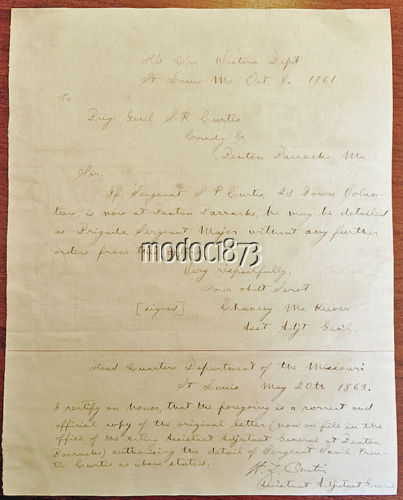 Hd Qrs Western Dept
St Louis Mo Oct 8. 1861
To
Brig Genl S R Curtis
Comdg &c
Benton Barracks Mo
Sir.
If Sergeant S P Curtis, 2d Iowa Volun-
teers, is now at Benton Barracks, he may be detailed
as Brigade Sergeant Major without any further
orders from this office.
modoc1873
Very respectfully,
Your obdt Servt
[signed] Chancey McKeever
Asst Adjt Genl.
Head Quarters Department of the Missouri
St Louis May 20th 1863.
I certify on honor, that the foregoing is a correct and
official copy of the original letter (now on file in the
office of the Assistant Adjutant General at Benton
Barracks) authorising the detail of Sergeant Saml Pren-
tis Curtis as above stated.
H. Z. Curtis
Assistant Adjutant General